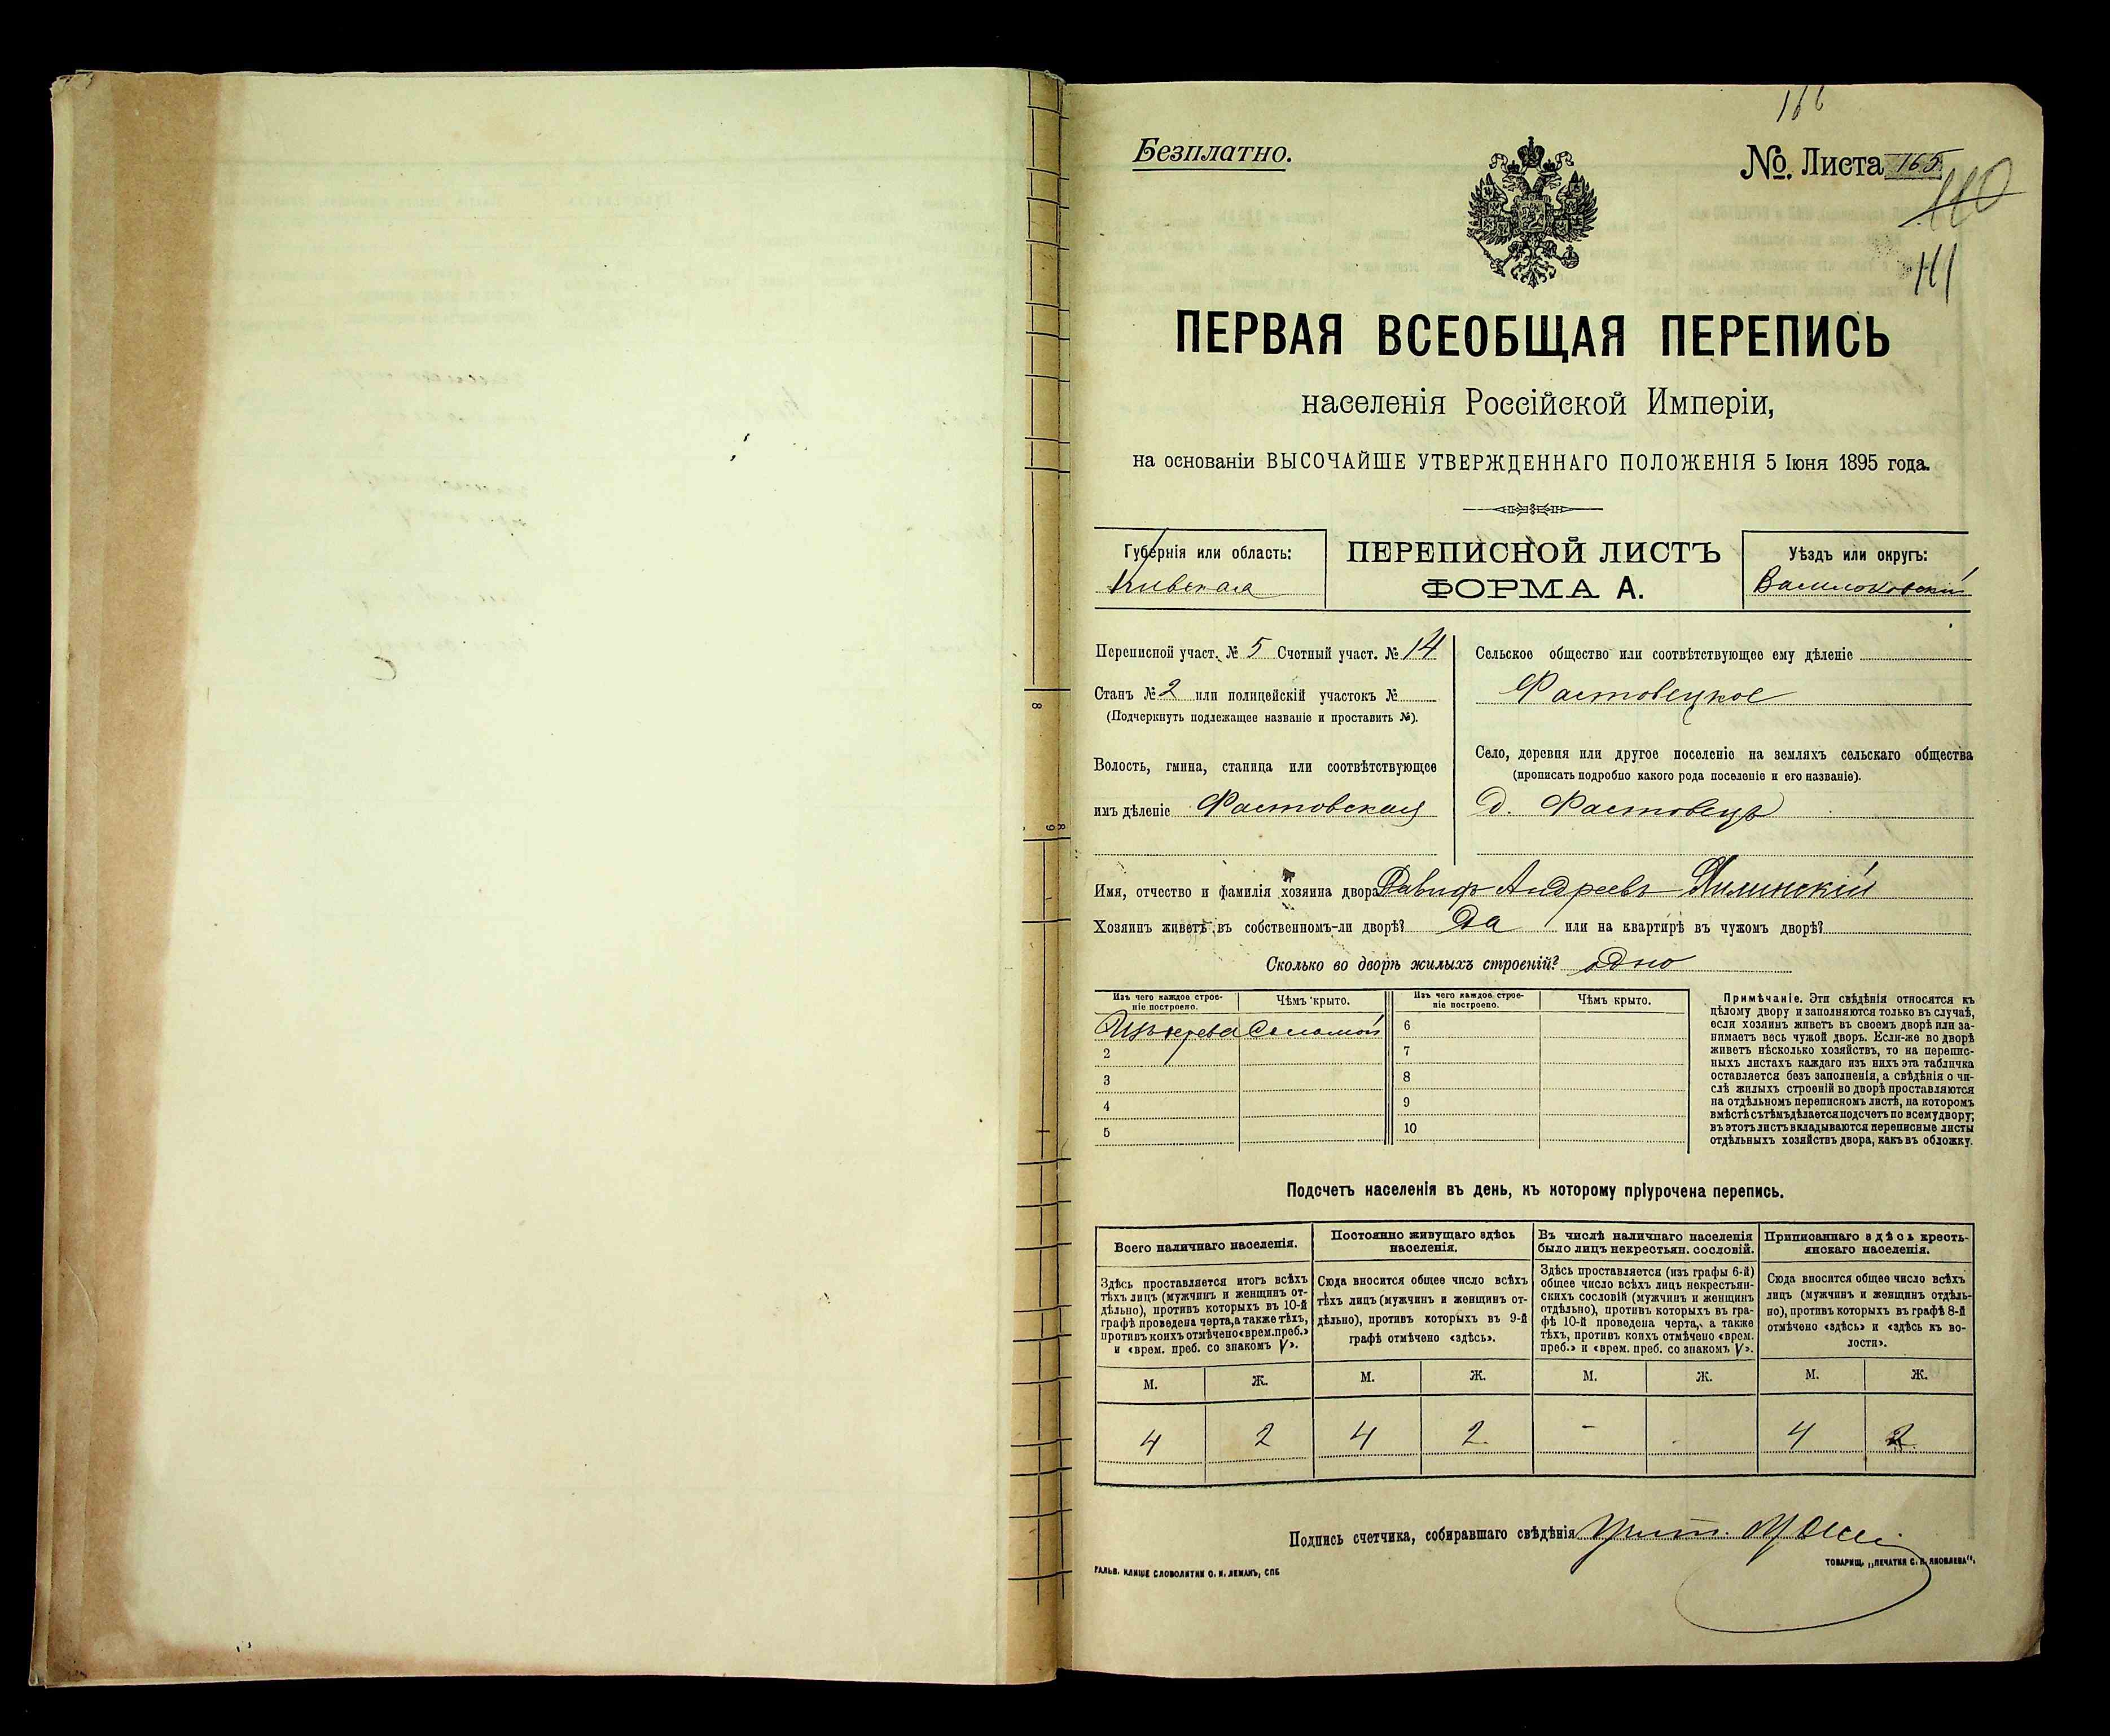 166
Безплатно.
№. Листа 165
110
111
ПЕРВАЯ ВСЕОБЩАЯ ПЕРЕПИСЬ
населенія Россійской Имперіи,
на основаніи ВЫСОЧАЙШЕ УТВЕРЖДЕННАГО ПОЛОЖЕНІЯ 5 Іюня 1895 года.
Губернія или область:
Кіевская
ПЕРЕПИСНОЙ ЛИСТЪ
ФОРМА А.
Уѣздъ или округъ:
Васильковскій
Переписной участ. № 5 Счетный участ. № 14
Станъ № 2 или полицейскій участокъ №
(Подчеркнуть подлежащее названіе и проставить №).
Волость, гмина, станица или соотвѣтствующее
имъ дѣленіе Фастовская
Сельское общество или соотвѣтствующее ему дѣленіе
Фастовецкое
Село, деревня или другое поселеніе на земляхъ сельскаго общества
(прописать подробно какого рода поселеніе и его названіе).
д. Фастовецъ
Имя, отчество и фамилія хозяина двора Давидъ Андреевъ
Хозяинъ живетъ въ собственномъ-ли дворѣ? Да или на квартирѣ въ чужомъ дворѣ?
Сколько во дворѣ жилыхъ строеній? одно
Изъ чего каждое строе-
ніе построено.
Чѣмъ крыто.
Изъ чего каждое строе-
ніе построено.
Чѣмъ крыто.
Изъ дерева Соломой
6
2
7
3
8
4
9
5
10
Примѣчаніе. Эти свѣдѣнія относятся къ
цѣлому двору и заполняются только въ случаѣ,
если хозяинъ живетъ въ своемъ дворѣ или за-
нимаетъ весь чужой дворъ. Если-же во дворѣ
живетъ нѣсколько хозяйствъ, то на перепис-
ныхъ листахъ каждаго изъ нихъ эта табличка
оставляется безъ заполненія, а свѣдѣнія о чи-
слѣ жилыхъ строеній во дворѣ проставляются
на отдѣльномъ переписномъ листѣ, на которомъ
вмѣстѣ съ тѣмъ дѣлается подсчетъ по всему двору;
въ этотъ листъ вкладываются переписные листы
отдѣльныхъ хозяйствъ двора, какъ въ обложку.
Подсчетъ населенія въ день, къ которому пріурочена перепись.
Всего наличнаго населенія.
Здѣсь проставляется итогъ всѣхъ
тѣхъ лицъ (мужчинъ и женщинъ от-
дѣльно), противъ которыхъ въ 10-й
графѣ проведена черта, а также тѣхъ,
противъ коихъ отмѣчено «врем. преб.»
и «врем. преб. со знакомъ V».
Постоянно живущаго здѣсь
населенія.
Сюда вносится общее число всѣхъ
тѣхъ лицъ (мужчинъ и женщинъ от-
дѣльно), противъ которыхъ въ 9-й
графѣ отмѣчено «здѣсь».
Въ числѣ наличнаго населенія
было лицъ некрестьян. сословій.
Здѣсь проставляется (изъ графы 6-й)
общее число всѣхъ лицъ некрестьян-
скихъ сословій (мужчинъ и женщинъ
отдѣльно), противъ которыхъ въ гра-
фѣ 10-й проведена черта, а также
тѣхъ, противъ коихъ отмѣчено «врем.
преб.» и «врем. преб. со знакомъ V».
Приписаннаго здѣсь кресть-
янскаго населенія.
Сюда вносится общее число всѣхъ
лицъ (мужчинъ и женщинъ отдѣль-
но), противъ которыхъ въ графѣ 8-й
отмѣчено «здѣсь» и «здѣсь къ во-
лости».
М. Ж. М. Ж. М. Ж. М. Ж.
4 2 4 2 - - 4 2
Подпись счетчика, собиравшаго свѣдѣнія
ГАЛЬВ. КЛИШЕ СЛОВОЛИТНИ О. И. ЛЕМАНЪ, СПБ
ТОВАРИЩ. „ПЕЧАТНЯ С. П. ЯКОВЛЕВА“.